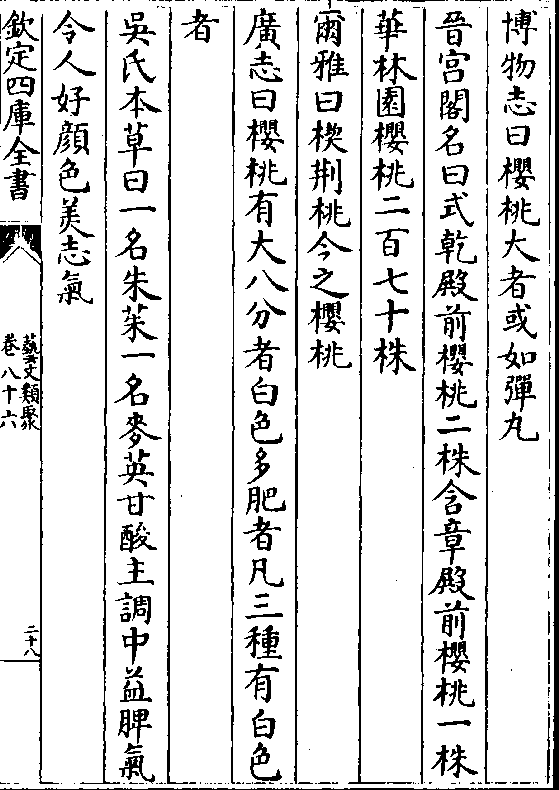 博物志曰櫻桃大者或如彈丸
晉宫閣名曰式乾殿前櫻桃二株含章殿前櫻桃一株
華林園櫻桃二百七十株
爾雅曰楔荆桃今之櫻桃
廣志曰櫻桃有大八分者白色多肥者凡三種有白色
者
吳氏本草曰一名朱茱一名麥英甘酸主調中益脾氣
令人好顔色美志氣
欽定四庫全書
藝文類聚
卷八十六
二十八